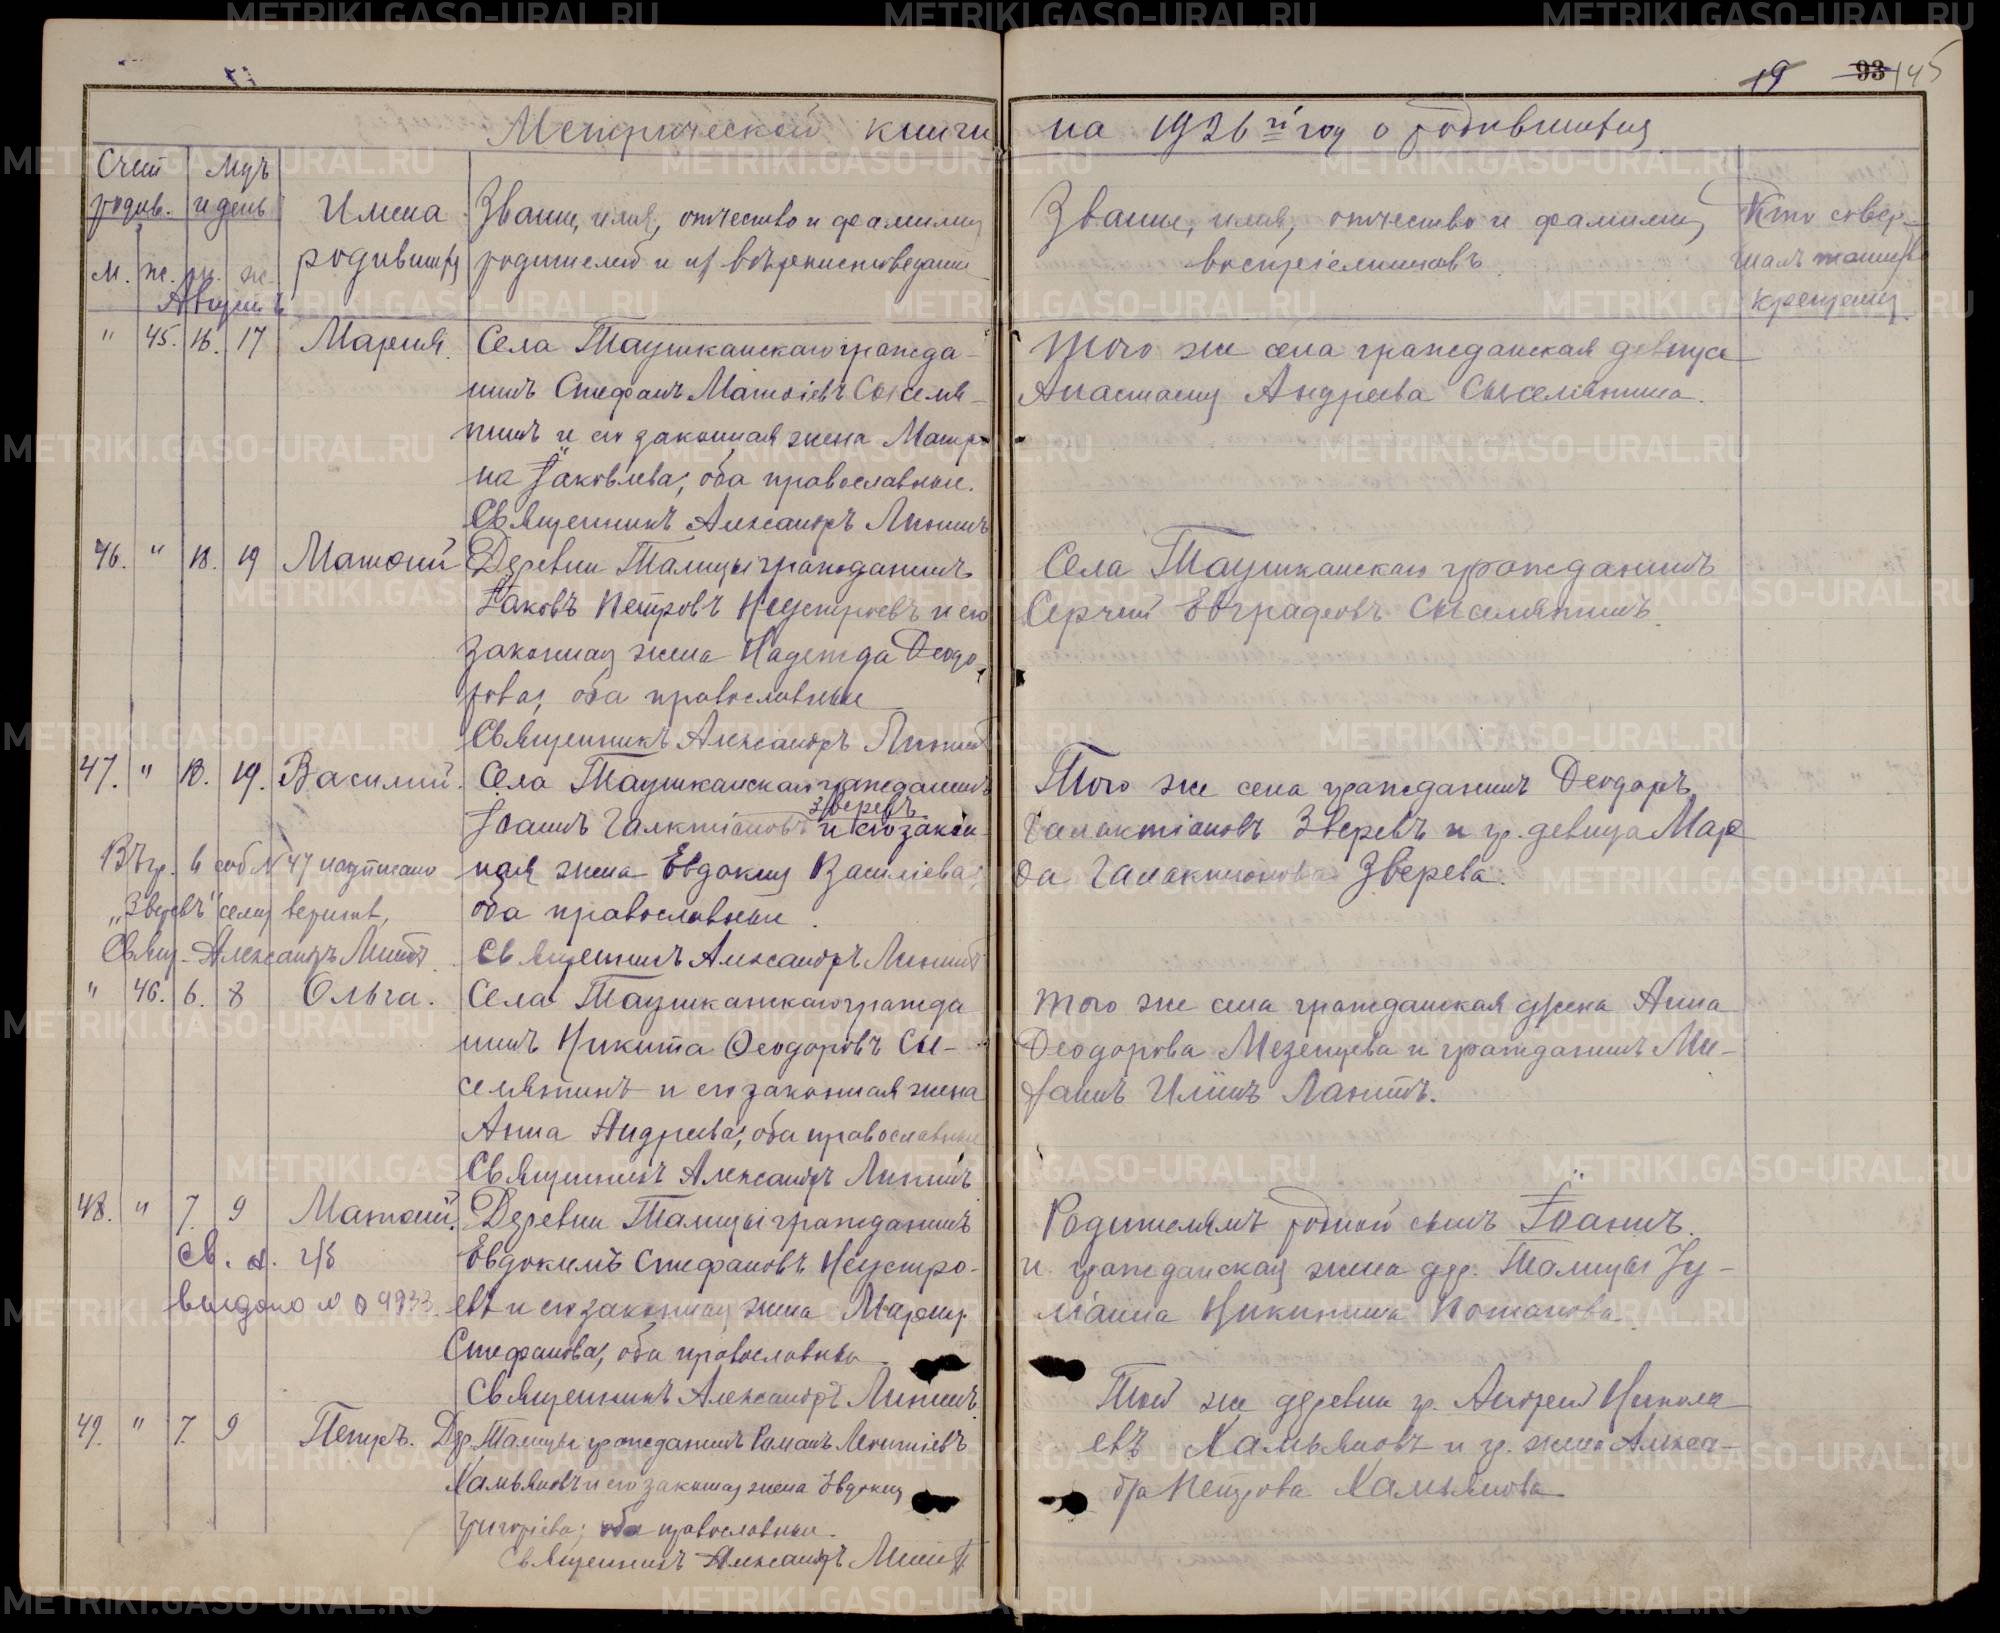 19 93 145
Метрической книги на 1926 й год о родившихся
Счет родив. Мцъ и день
м. ж. м. ж.
Имена родившихся
Званіе, имя, отчество и фамилия
родителей и их вѣроисповедание
Званіе, имя, отчество и фамилия
восприемниковъ
Кто совер-
шал таинство
крещения
Августъ
" 45. 16. 17 Мария.
Села Таушканскаго гражда-
нинъ Стефанъ Матѳіевъ Сыселя-
тинъ и его законная жена Матро-
на Іаковлева, оба православные.
Священникъ Александръ
Того же села гражданская девица
Анастасия Андреева Сыселятина.
46. " 18. 19 Матѳий
Деревни Талицы гражданинъ
Іаковъ Петровъ Неустроевъ и его
законная жена Надежда Ѳеодо-
рова, оба православные
Священникъ Александръ
Села Таушканскаго гражданинъ
Сергий Евграфовъ Сыселятинъ.
47. " 18. 19. Василий.
Села Таушканскаго гражданинъ
Зверевъ
Іоаннъ Галактіоновъ и его закон-
ная жена Евдокия Василіева,
оба православные.
Священникъ Александръ
Въ гр. 4 соб № 47 надписано
„Зверевъ"
Свящ. Александръ
Того же села гражданинъ Ѳеодоръ
Галактіоновъ Зверевъ и гр. девица Мар
Галактионова Зверева.
" 46. 6. 8 Ольга.
Села Таушканскаго гражда
нинъ Никита Ѳеодоровъ Сы-
селятинъ и его законная жена
Анна Андреева, оба православные
Священникъ Александръ
Того же села гражданская жена Анна
Ѳеодорова Мезенцева и гражданинъ Ми-
48. " 7. 9 Матѳий.
Св. о. г/б
выдано № 09933.
Деревни Талицы гражданинъ
Евдокимъ Стефановъ Неустро-
евъ и его законная жена Мария
Стефанова, оба православны
Священникъ Александръ
Родителямъ родной сынъ Іоаннъ.
и гражданская жена дер. Талицы Іу-
ліанна Никитина Потапова.
49. " 7. 9 Петръ.
Дер. Талицы гражданинъ Романъ Леонтіевъ
Хамьяновъ и его законная жена Евдокия
Григоріева, оба православные.
Священникъ Александръ
Той же деревни гр. Андрей Никола
евъ Хамьяновъ и гр. жена Алекса-
дра Петрова Хамьянова
METRIKI.GASO-URAL.RU